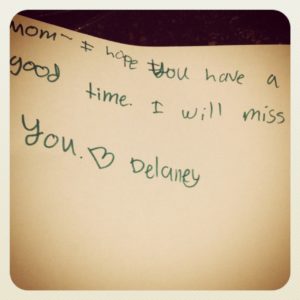 mom~ I hope you have a
good time. I will miss
you. ♡ Delaney